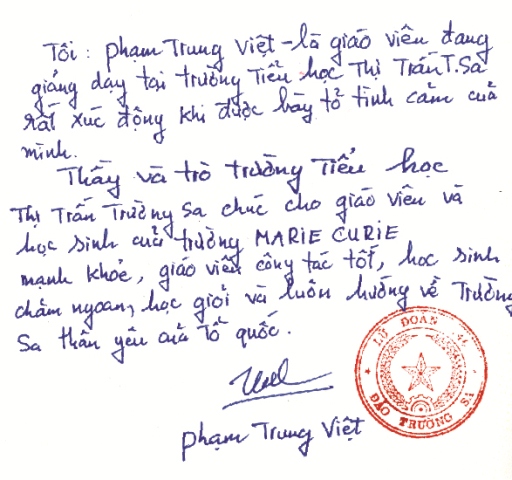 Tôi : phạm Trung Việt - là giáo viên đang
giảng dạy tại trường Tiểu học Thị Trấn T.Sa
rất xúc động khi được bày tỏ tình cảm của
mình.
Thầy và trò trường Tiểu học
Thị Trấn Trường Sa chúc cho giáo viên và
học sinh của trường MARIE CURIE
mạnh khỏe, giáo viên công tác tốt, học sinh
chăm ngoan, học giỏi và luôn hướng về Trường
Sa thân yêu của Tổ quốc.
phạm Trung Việt
LỮ ĐOÀN 46
ĐẢO TRƯỜNG SA